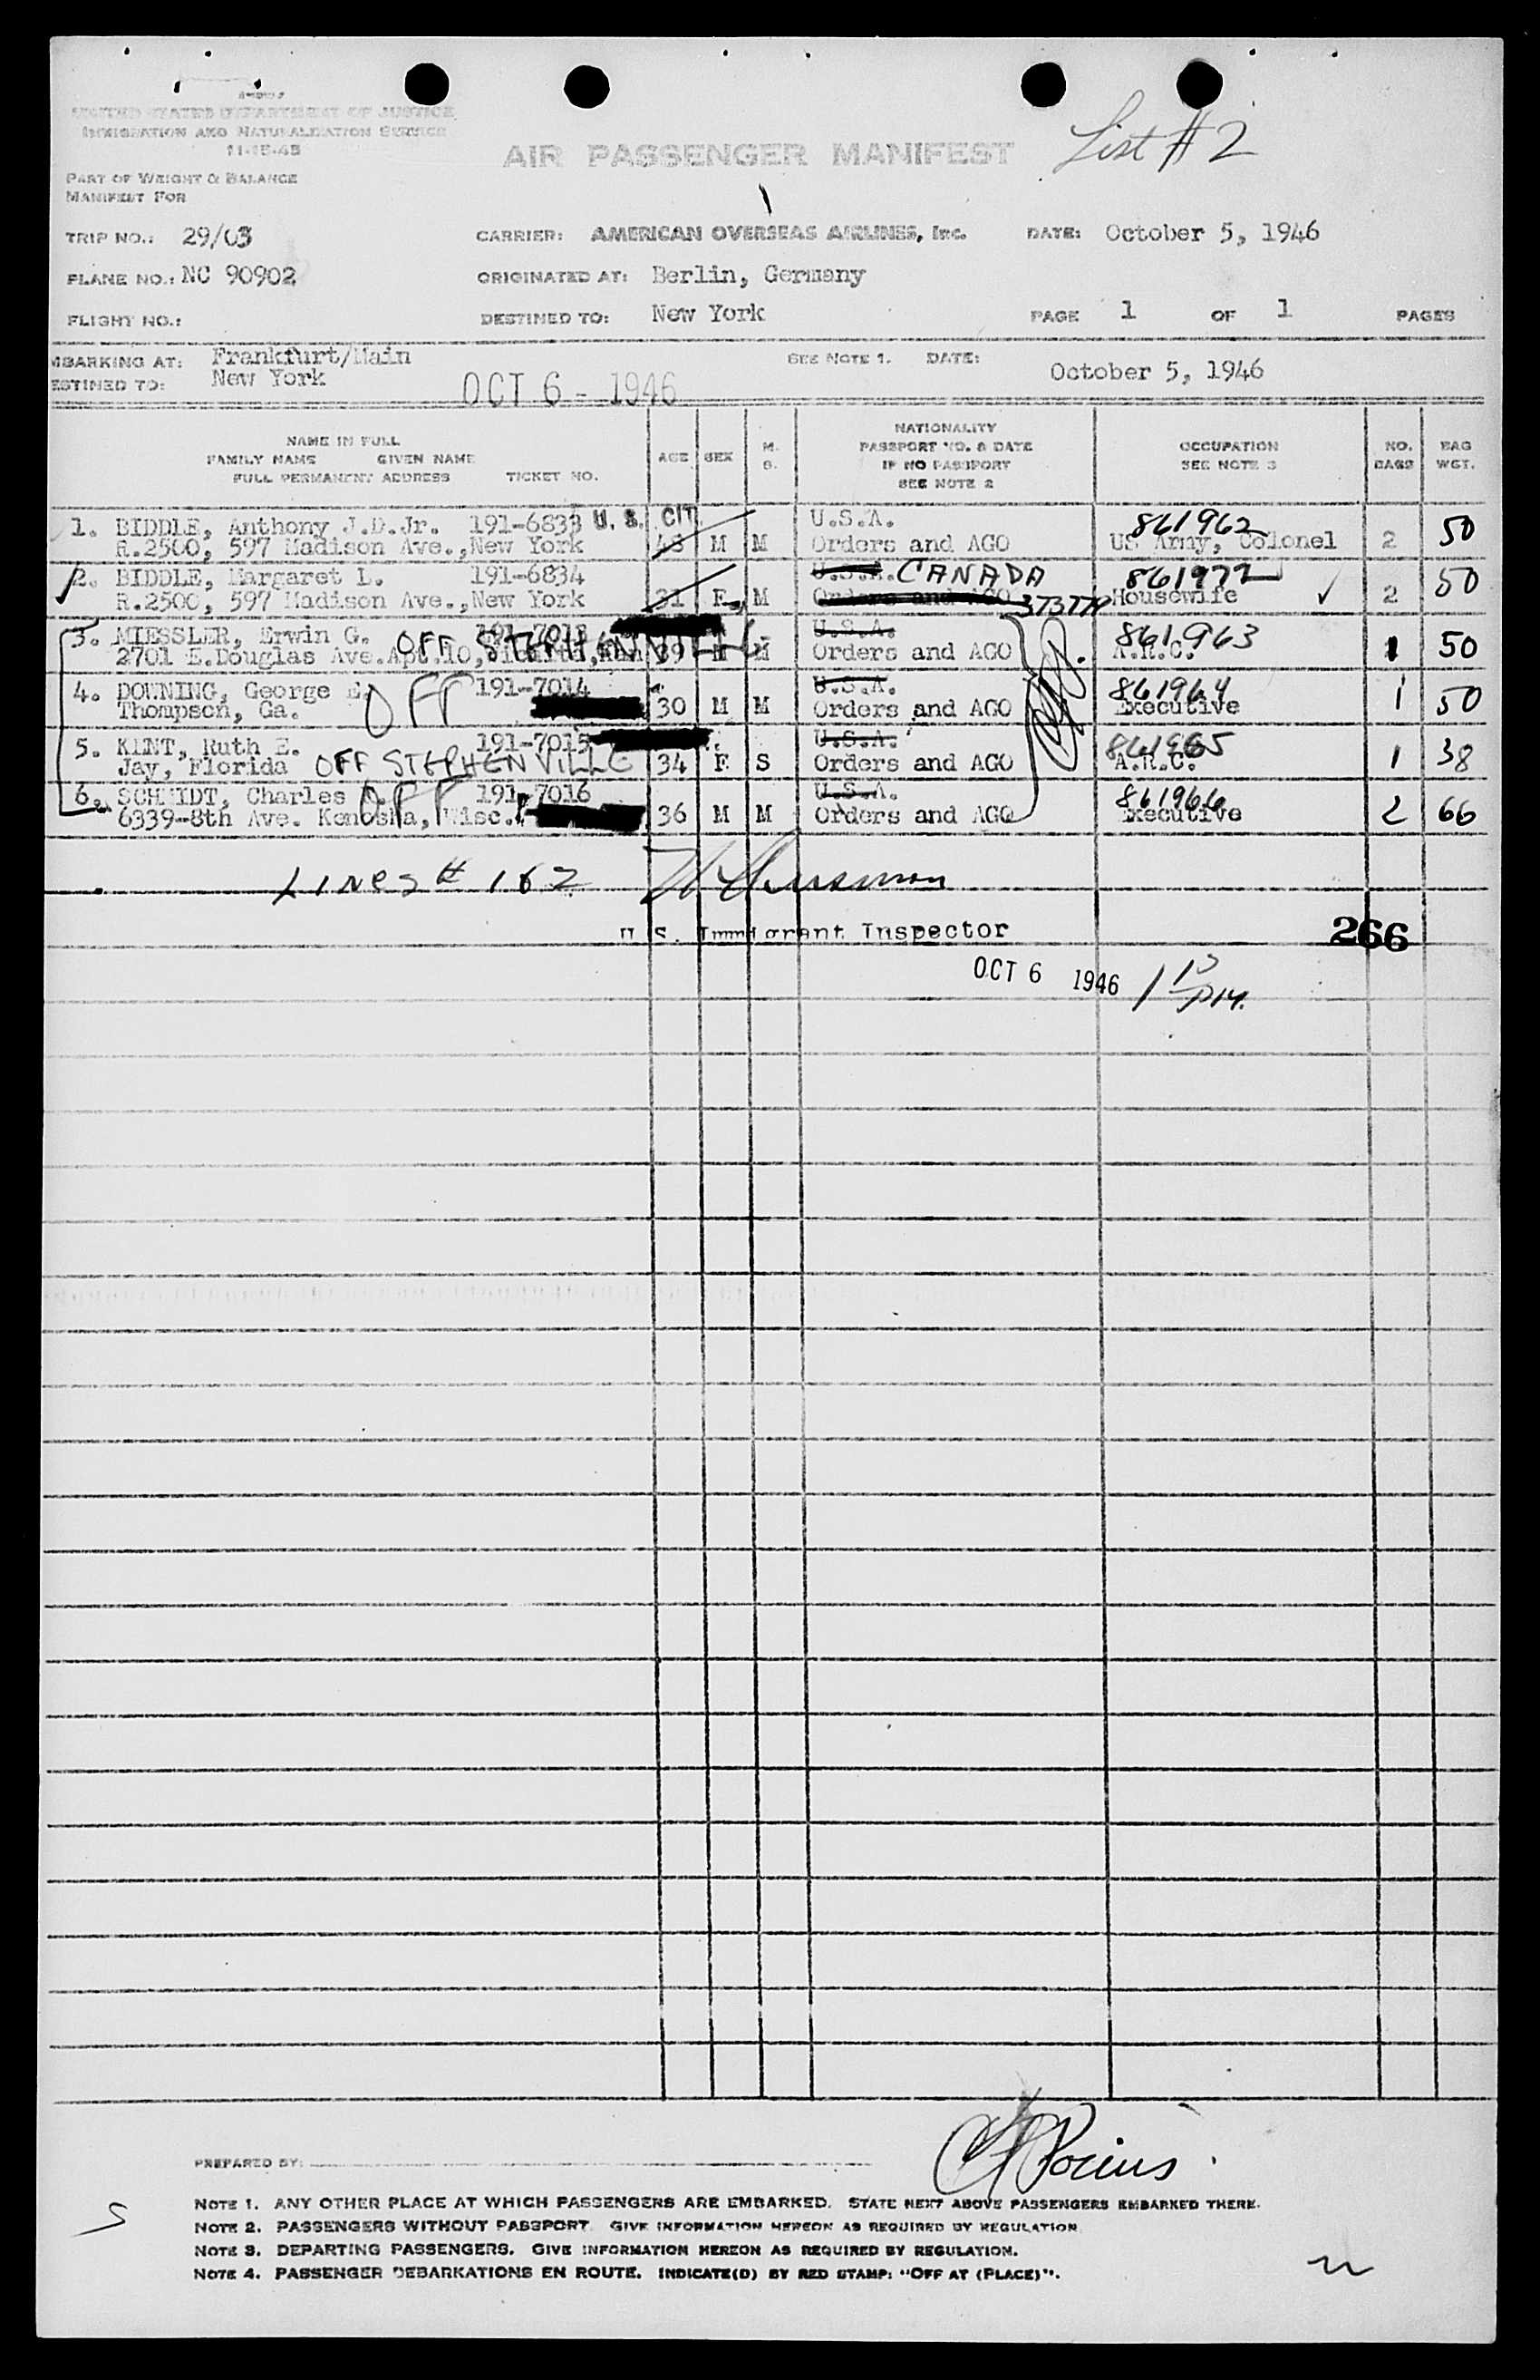 UNITED STATES DEPARTMENT OF JUSTICE
IMMIGRATION AND NATURALIZATION SERVICE
11-15-45
AIR PASSENGER MANIFEST
List #2
PART OF WEIGHT & BALANCE
MANIFEST FOR
TRIP NO.: 29/03 CARRIER: AMERICAN OVERSEAS AIRLINES, Inc. DATE: October 5, 1946
PLANE NO.: NC 90902 ORIGINATED AT: Berlin, Germany
FLIGHT NO.: DESTINED TO: New York PAGE 1 OF 1 PAGES
MBARKING AT: Frankfurt/Main SEE NOTE 1. DATE: October 5, 1946
ESTINED TO: New York
OCT 6 - 1946
NAME IN FULL
FAMILY NAME GIVEN NAME
FULL PERMANENT ADDRESS TICKET NO. AGE SEX M. S. NATIONALITY PASSPORT NO. & DATE IF NO PASSPORT SEE NOTE 2 OCCUPATION SEE NOTE 3 NO. BAGS BAG WGT.
1. BIDDLE, Anthony J.D.Jr. 191-6833 U.S. CIT. U.S.A. 861962
R.2500, 597 Madison Ave.,New York 48 M M Orders and AGO US Army, Colonel 2 50
2. BIDDLE, Margaret L. 191-6834 U.S.A. CANADA 861972
R.2500, 597 Madison Ave.,New York 31 F M Orders and AGO 373774 Housewife 2 50
3. MIESSLER, Erwin G. OFF STEPHENVILLE 191-7013 U.S.A. 861963
2701 E.Douglas Ave.Apt.10, 39 M M Orders and AGO A.R.C. 1 50
4. DOWNING, George E. OFF 191-7014 U.S.A. 861964
Thompson, Ga. 30 M M Orders and AGO Executive 1 50
5. KENT, Ruth E. 191-7015 U.S.A. 861965
Jay, Florida OFF STEPHENVILLE 34 F S Orders and AGO A.R.C. 1 38
6. SCHMIDT, Charles OFF 191-7016 U.S.A. 861966
6339-8th Ave. Kenosha, Wisc. 36 M M Orders and AGO Executive 2 66
Lines # 1 & 2
U.S. Immigrant Inspector 266
OCT 6 1946 1 15 PM.
PREPARED BY:
NOTE 1. ANY OTHER PLACE AT WHICH PASSENGERS ARE EMBARKED. STATE NEXT ABOVE PASSENGERS EMBARKED THERE.
NOTE 2. PASSENGERS WITHOUT PASSPORT. GIVE INFORMATION HEREON AS REQUIRED BY REGULATION.
NOTE 3. DEPARTING PASSENGERS. GIVE INFORMATION HEREON AS REQUIRED BY REGULATION.
NOTE 4. PASSENGER DEBARKATIONS EN ROUTE. INDICATE(D) BY RED STAMP: "OFF AT (PLACE)".